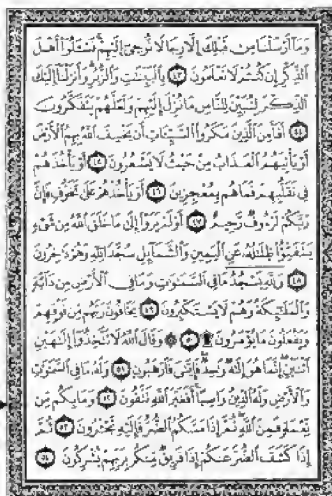 وَمَآ أَرْسَلْنَا مِن قَبْلِكَ إِلَّا رِجَالًا نُّوحِىٓ إِلَيْهِمْ فَسْـَٔلُوٓا۟ أَهْلَ
ٱلذِّكْرِ إِن كُنتُمْ لَا تَعْلَمُونَ ٤٣ بِٱلْبَيِّنَـٰتِ وَٱلزُّبُرِ وَأَنزَلْنَآ إِلَيْكَ
ٱلذِّكْرَ لِتُبَيِّنَ لِلنَّاسِ مَا نُزِّلَ إِلَيْهِمْ وَلَعَلَّهُمْ يَتَفَكَّرُونَ
٤٤ أَفَأَمِنَ ٱلَّذِينَ مَكَرُوا۟ ٱلسَّيِّـَٔاتِ أَن يَخْسِفَ ٱللَّهُ بِهِمُ ٱلْأَرْضَ
أَوْ يَأْتِيَهُمُ ٱلْعَذَابُ مِنْ حَيْثُ لَا يَشْعُرُونَ ٤٥ أَوْ يَأْخُذَهُمْ
فِى تَقَلُّبِهِمْ فَمَا هُم بِمُعْجِزِينَ ٤٦ أَوْ يَأْخُذَهُمْ عَلَىٰ تَخَوُّفٍ فَإِنَّ
رَبَّكُمْ لَرَءُوفٌ رَّحِيمٌ ٤٧ أَوَلَمْ يَرَوْا۟ إِلَىٰ مَا خَلَقَ ٱللَّهُ مِن شَىْءٍ
يَتَفَيَّؤُا۟ ظِلَـٰلُهُۥ عَنِ ٱلْيَمِينِ وَٱلشَّمَآئِلِ سُجَّدًا لِّلَّهِ وَهُمْ دَٰخِرُونَ
٤٨ وَلِلَّهِ يَسْجُدُ مَا فِى ٱلسَّمَـٰوَٰتِ وَمَا فِى ٱلْأَرْضِ مِن دَآبَّةٍ
وَٱلْمَلَـٰٓئِكَةُ وَهُمْ لَا يَسْتَكْبِرُونَ ٤٩ يَخَافُونَ رَبَّهُم مِّن فَوْقِهِمْ
وَيَفْعَلُونَ مَا يُؤْمَرُونَ ۩ ٥٠ ۞ وَقَالَ ٱللَّهُ لَا تَتَّخِذُوٓا۟ إِلَـٰهَيْنِ
ٱثْنَيْنِ إِنَّمَا هُوَ إِلَـٰهٌ وَٰحِدٌ فَإِيَّـٰىَ فَٱرْهَبُونِ ٥١ وَلَهُۥ مَا فِى ٱلسَّمَـٰوَٰتِ
وَٱلْأَرْضِ وَلَهُ ٱلدِّينُ وَاصِبًا أَفَغَيْرَ ٱللَّهِ تَتَّقُونَ ٥٢ وَمَا بِكُم مِّن
نِّعْمَةٍ فَمِنَ ٱللَّهِ ثُمَّ إِذَا مَسَّكُمُ ٱلضُّرُّ فَإِلَيْهِ تَجْـَٔرُونَ ٥٣ ثُمَّ
إِذَا كَشَفَ ٱلضُّرَّ عَنكُمْ إِذَا فَرِيقٌ مِّنكُم بِرَبِّهِمْ يُشْرِكُونَ ٥٤